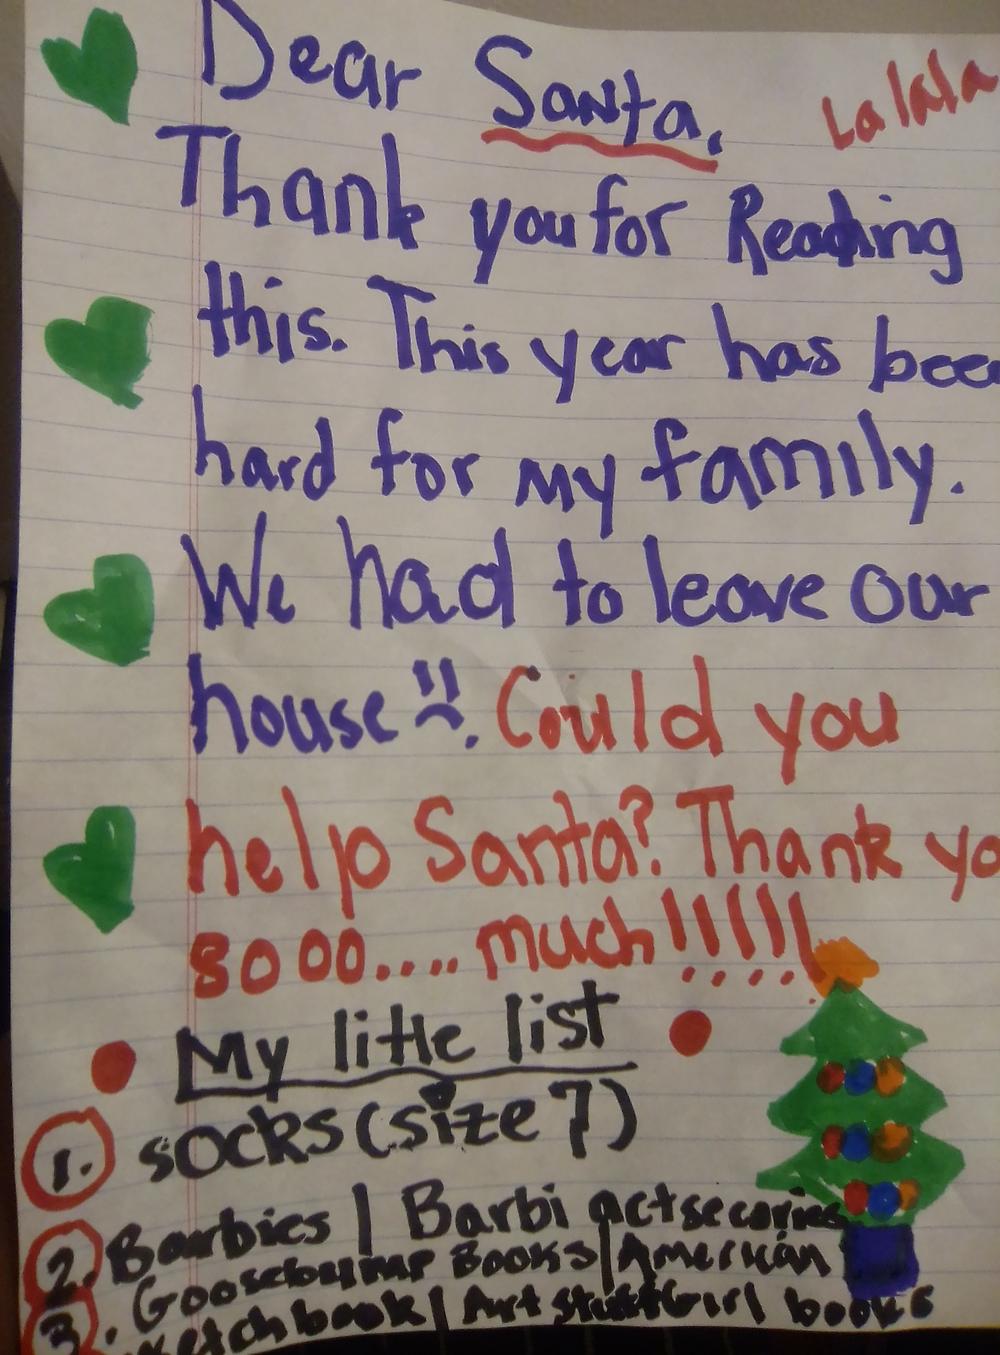 Dear Santa,
La lala
Thank you for Reading
this. This year has bee
hard for My family.
We had to leave our
house. Could you
help Santa? Thank yo
sooo.... much!!!!!!
My little list
1. socks (size 7)
2. Barbies | Barbi actsecories
Goosebump Books | American
3. ketchbook | Art stuff Girl books